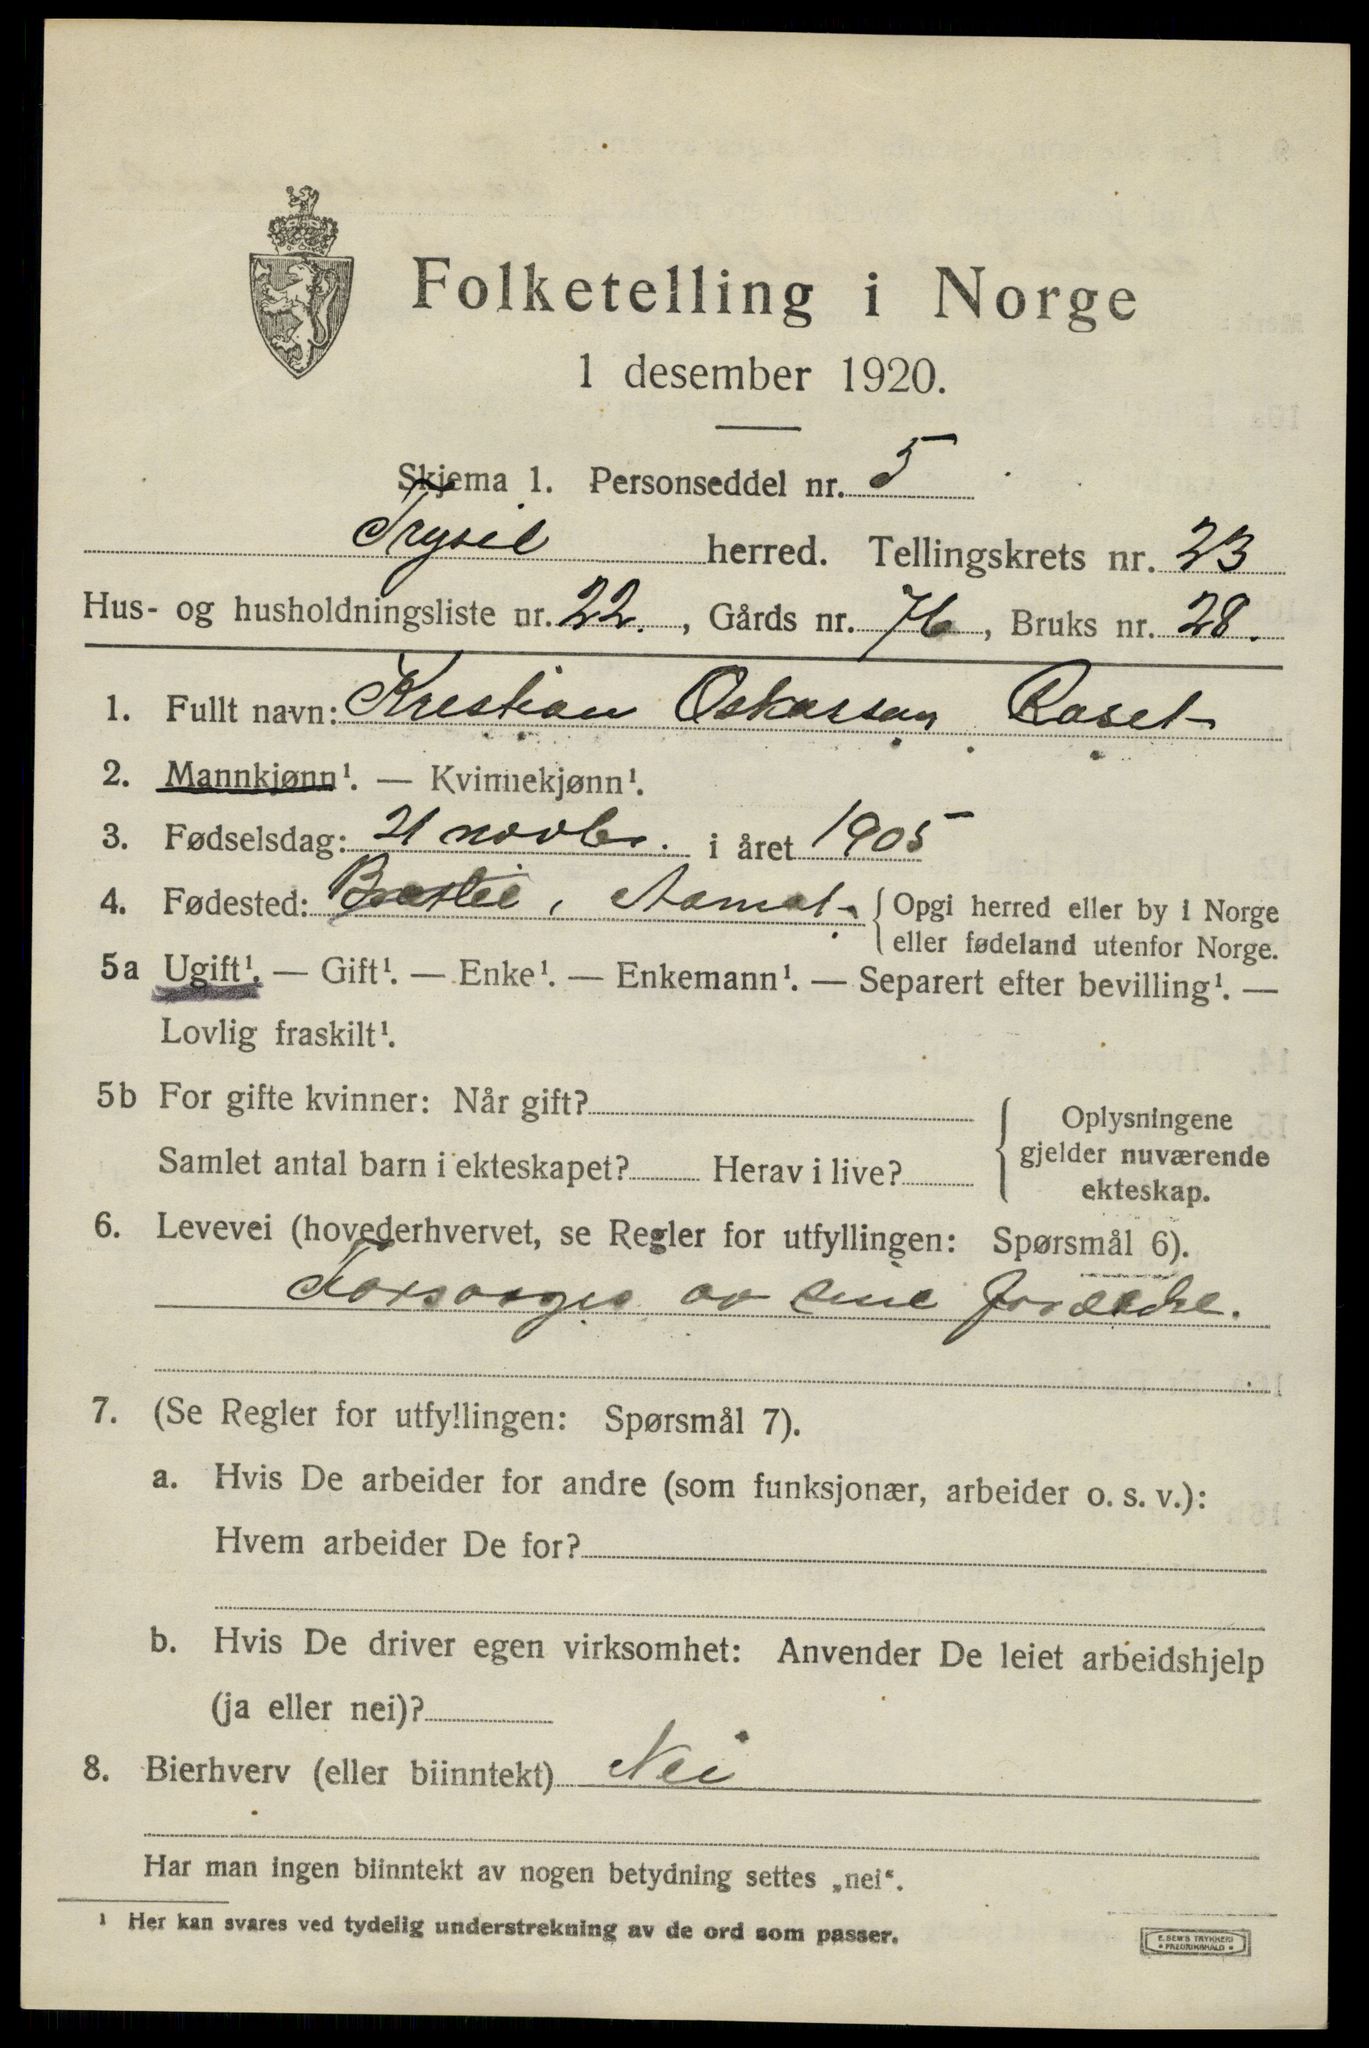 Folketelling i Norge
1 desember 1920.
Skjema 1. Personseddel nr. 5
Trysil herred. Tellingskrets nr. 23
Hus- og husholdningsliste nr. 22. , Gårds nr. 76 , Bruks nr. 28.
1. Fullt navn: Krestian Oskarsen Raset
2. Mannkjønn¹. — Kvinnekjønn¹.
3. Fødselsdag: 21 novbr. i året 1905
4. Fødested: , Aamot { Opgi herred eller by i Norge
eller fødeland utenfor Norge.
5a Ugift¹. — Gift¹. — Enke¹. — Enkemann¹. — Separert efter bevilling¹. —
Lovlig fraskilt¹.
5b For gifte kvinner: Når gift?
Samlet antal barn i ekteskapet? Herav i live?
{ Oplysningene
gjelder nuværende
ekteskap.
6. Levevei (hovederhvervet, se Regler for utfyllingen: Spørsmål 6).
Forsørges av sine forældre.
7. (Se Regler for utfyllingen: Spørsmål 7).
a. Hvis De arbeider for andre (som funksjonær, arbeider o. s. v.):
Hvem arbeider De for?
b. Hvis De driver egen virksomhet: Anvender De leiet arbeidshjelp
(ja eller nei)?
8. Bierhverv (eller biinntekt) Nei
Har man ingen biinntekt av nogen betydning settes „nei".
¹ Her kan svares ved tydelig understrekning av de ord som passer.
E. SEM'S TRYKKERI
• FREDRIKSHALD •